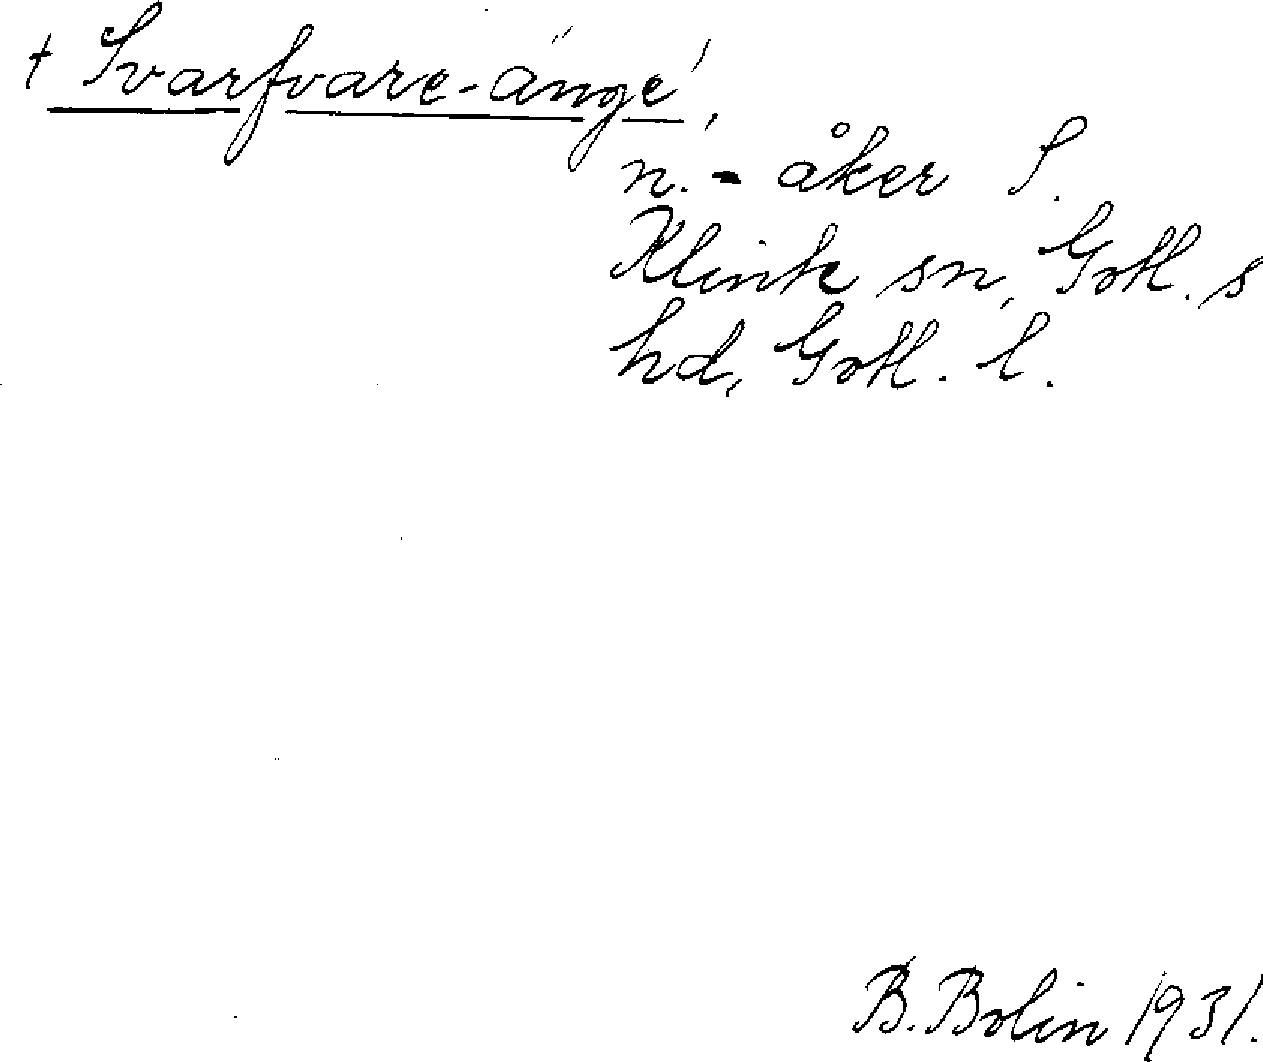 + Svarfvare-änge',
n. - åker S.
Klinte sn, Gotl. s
hd, Gotl. l.
B. Bolin 1931.